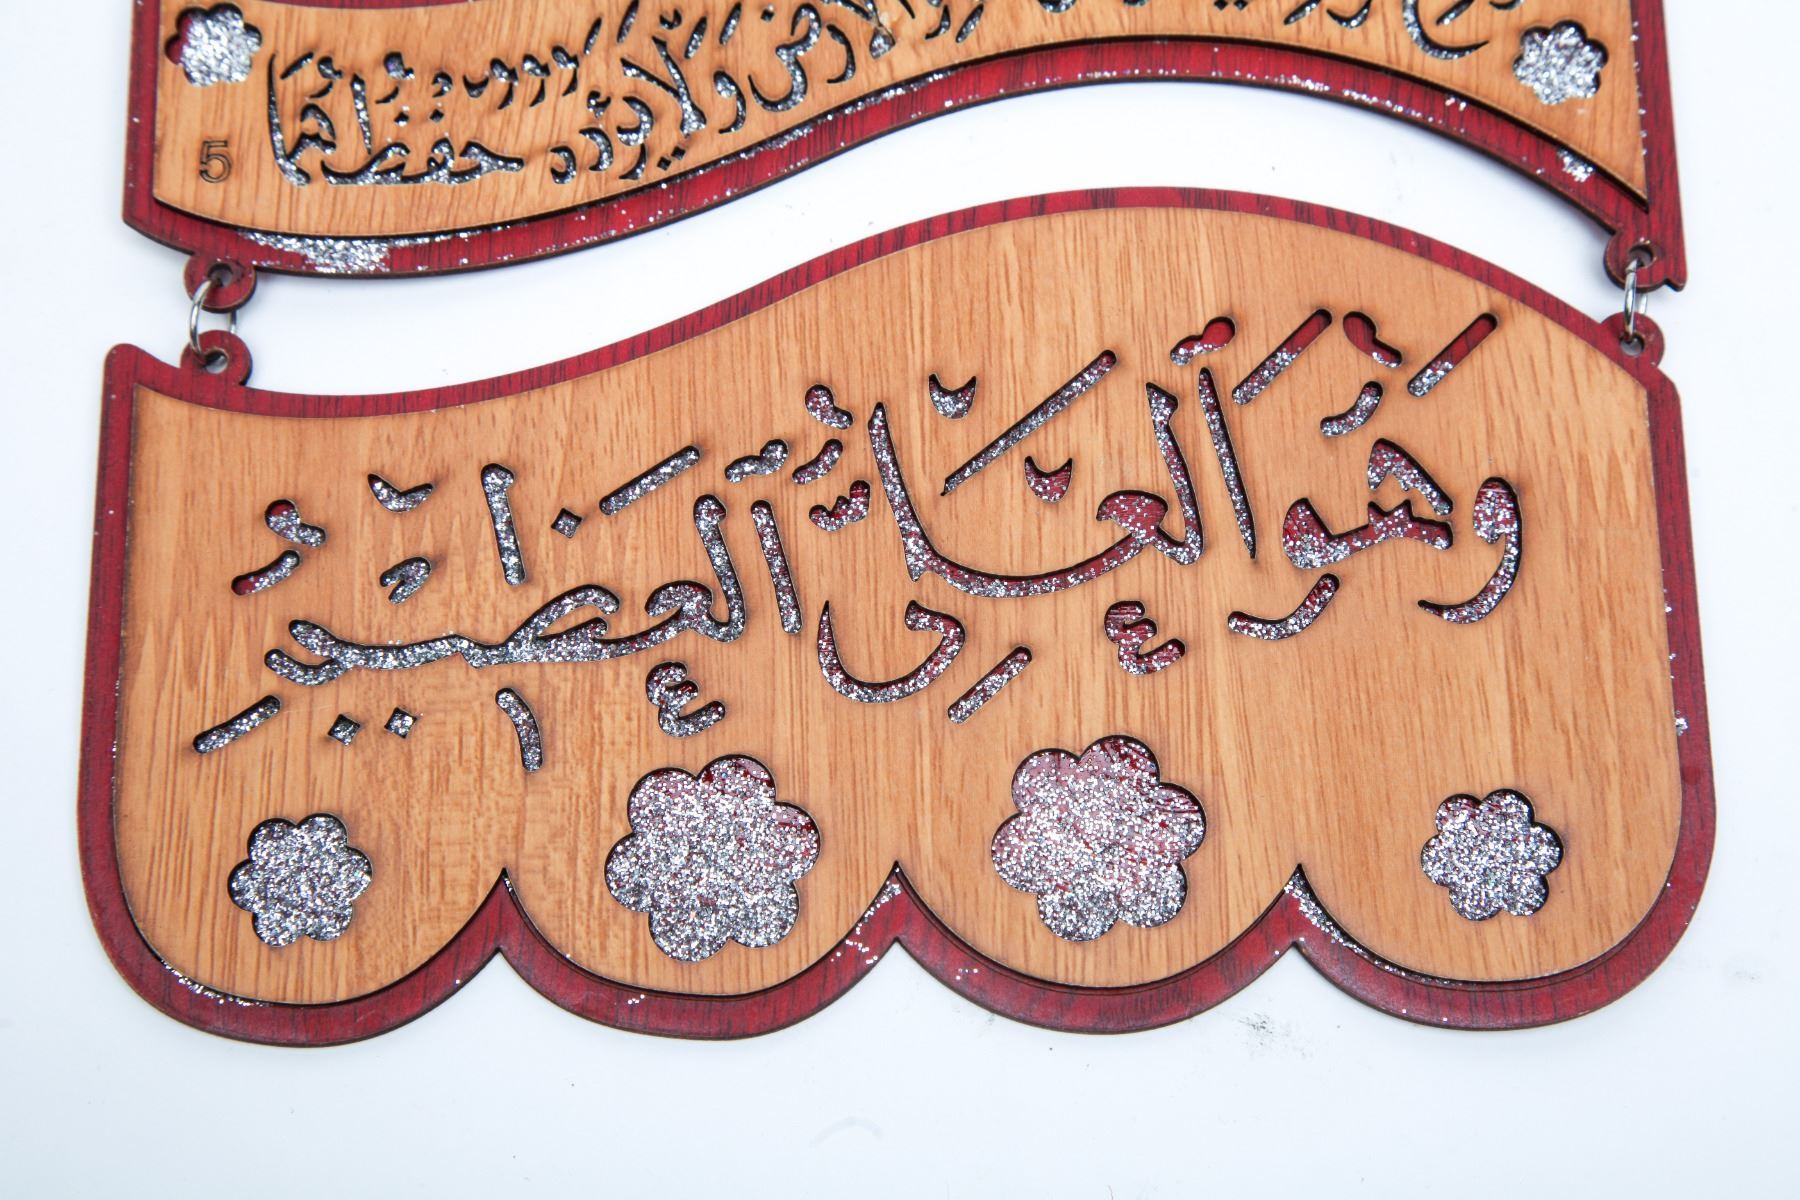 وَالْأَرْضَ وَلَا يَئُودُهُ حِفْظُهُمَا
5
وَهُوَ ٱلْعَلِىُّ ٱلْعَظِيمُ